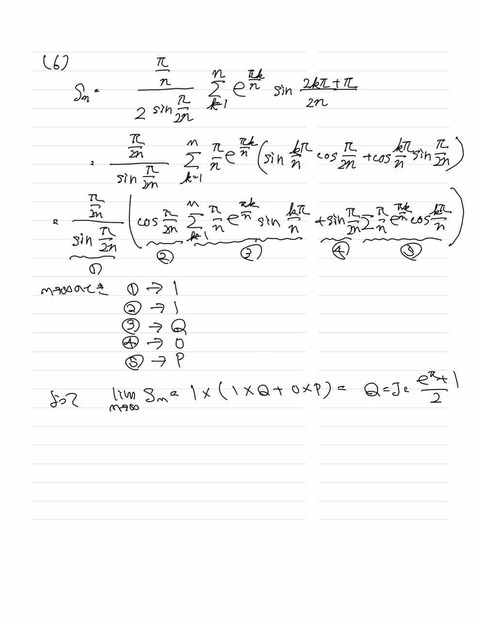 (6)
Sn = \frac{\frac{π}{n}}{2 sin\frac{π}{2n}} \sum_{k=1}^{n} e^{\frac{πk}{n}} sin \frac{2kπ+π}{2n}
= \frac{\frac{π}{2n}}{sin\frac{π}{2n}} \sum_{k=1}^{n} \frac{π}{n} e^{\frac{πk}{n}} (sin\frac{kπ}{n} cos\frac{π}{2n} + cos\frac{kπ}{n} sin\frac{π}{2n})
= \frac{\frac{π}{2n}}{sin\frac{π}{2n}} (cos\frac{π}{2n} \sum_{k=1}^{n} \frac{π}{n} e^{\frac{πk}{n}} sin\frac{kπ}{n} + sin\frac{π}{2n} \sum \frac{π}{n} e^{\frac{πk}{n}} cos\frac{kπ}{n})
① ② ③ ④ ⑤
n→∞のとき ① → 1
② → 1
③ → Q
④ → 0
⑤ → P
よって \lim_{n→∞} Sn = 1 × (1 × Q + 0 × P) = Q = J = \frac{e^π+1}{2}